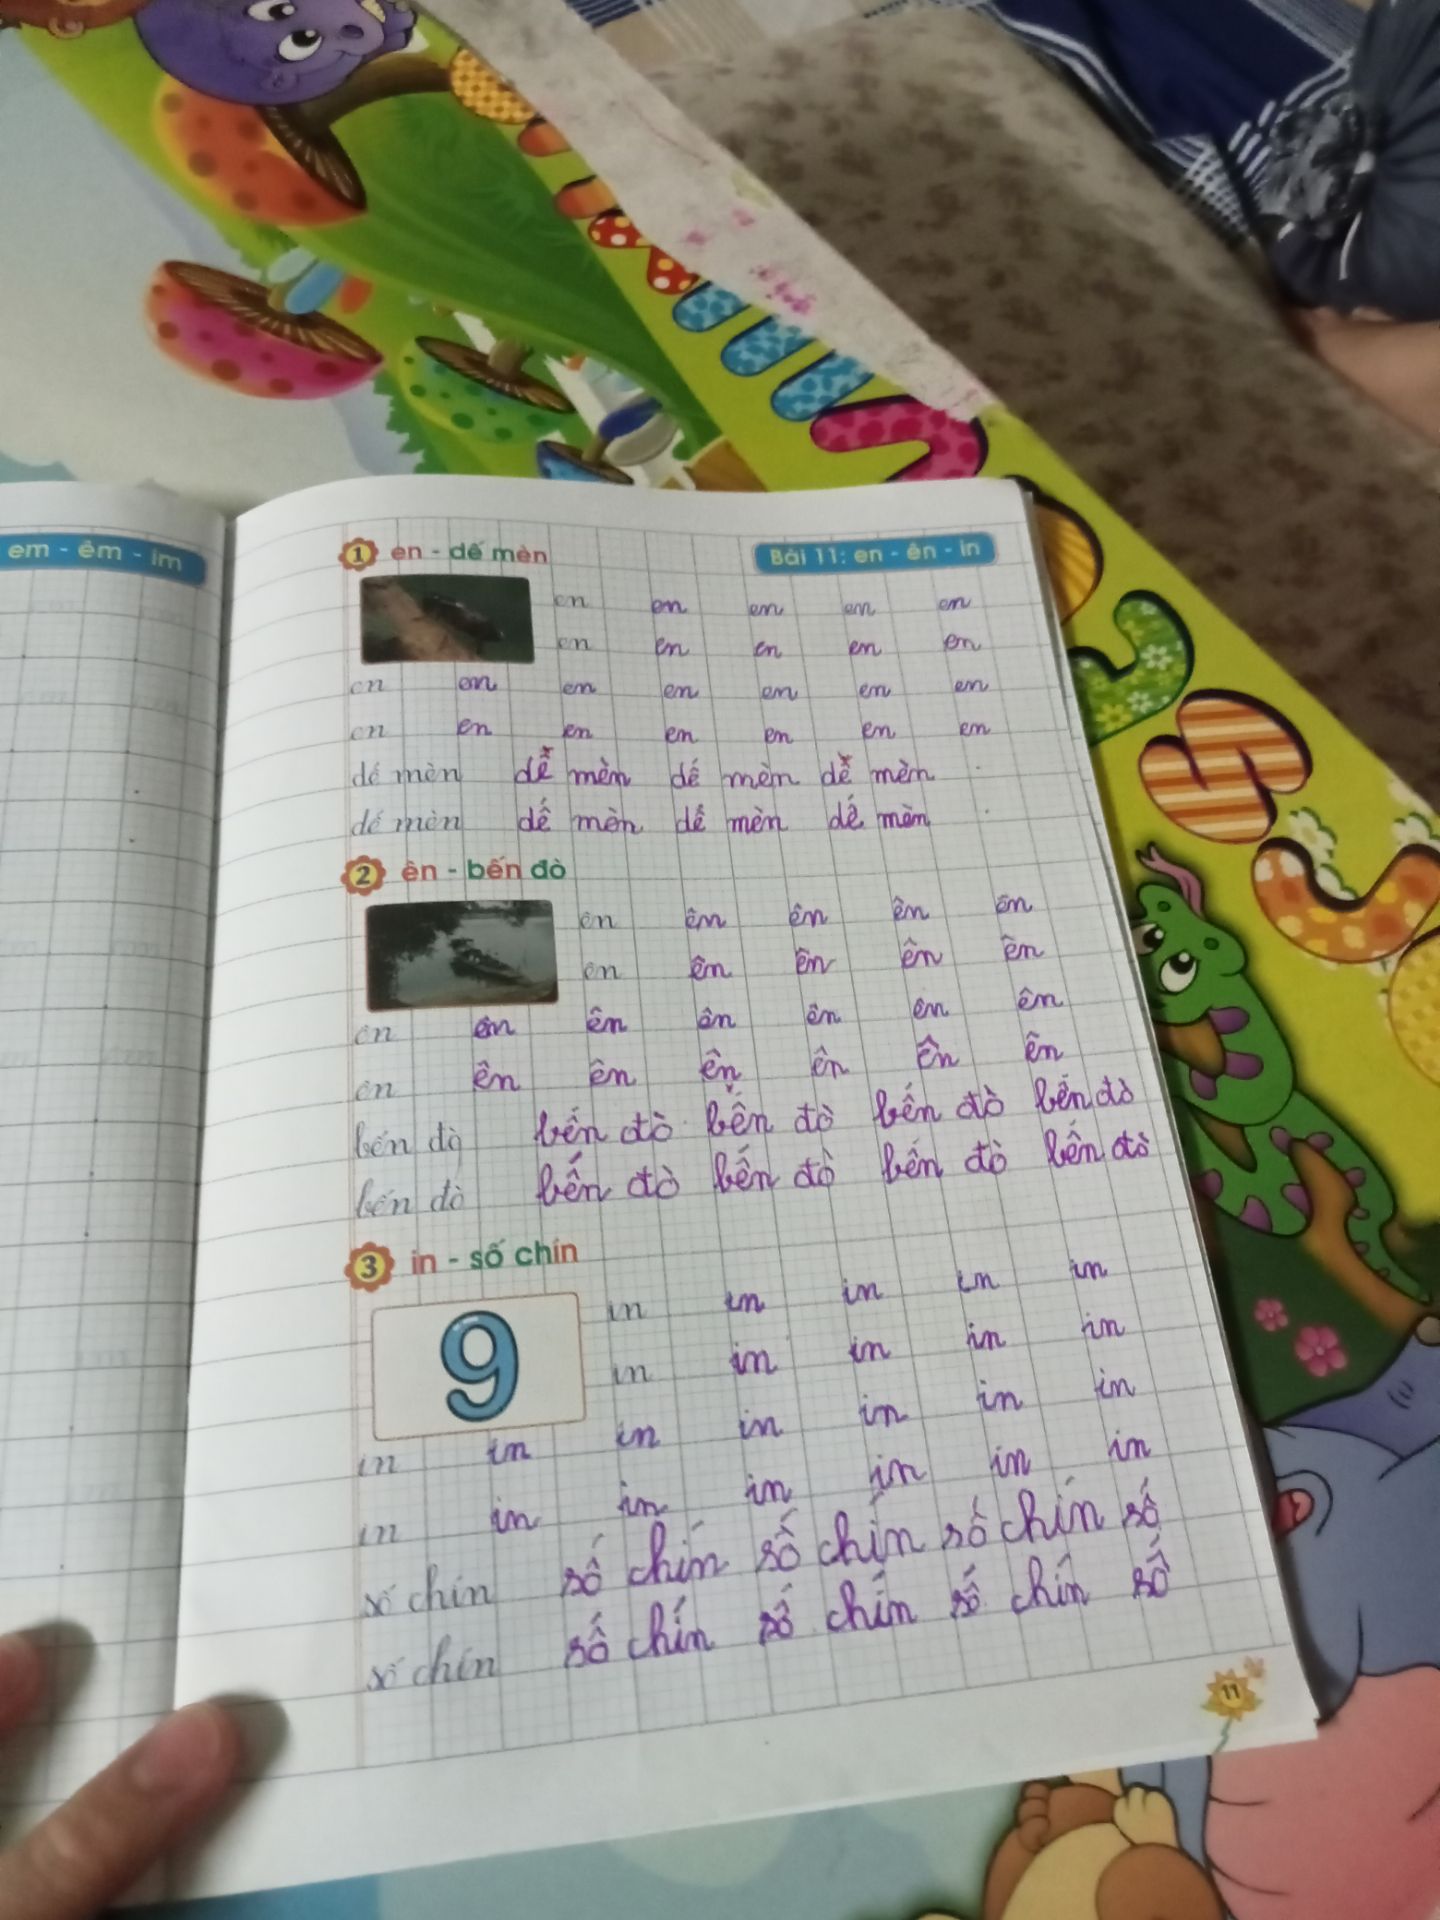 em - êm - im
1 en - dế mèn
Bài 11: en - ên - in
en en en en en
en en en en en
en en en en en en en
en en en en en en en
dế mèn dế mèn dế mèn dế mèn
dế mèn dế mèn dế mèn dế mèn
2 ên - bến đò
ên ên ên ên ên
ên ên ên ên ên
ên ên ên ên ên ên ên
ên ên ên ên ên ên ên
bến đò bến đò bến đò bến đò bến đò
bến đò bến đò bến đò bến đò bến đò
3 in - số chín
9
in in in in in
in in in in in
in in in in in in in
in in in in in in in
số chín số chín số chín số chín số
số chín số chín số chín số chín số
11